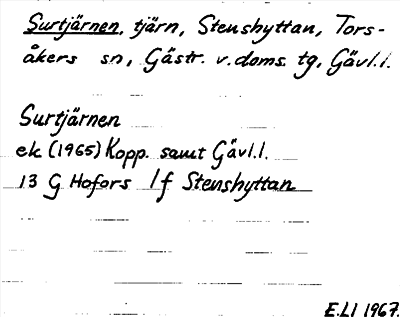 Surtjärnen, tjärn, Stenshyttan, Tors-
åkers sn, Gästr. v. doms. tg, Gävl.l.
Surtjärnen
ek (1965) Kopp. samt Gävl.l.
13 G Hofors 1f Stenshyttan
E.LI 1967.